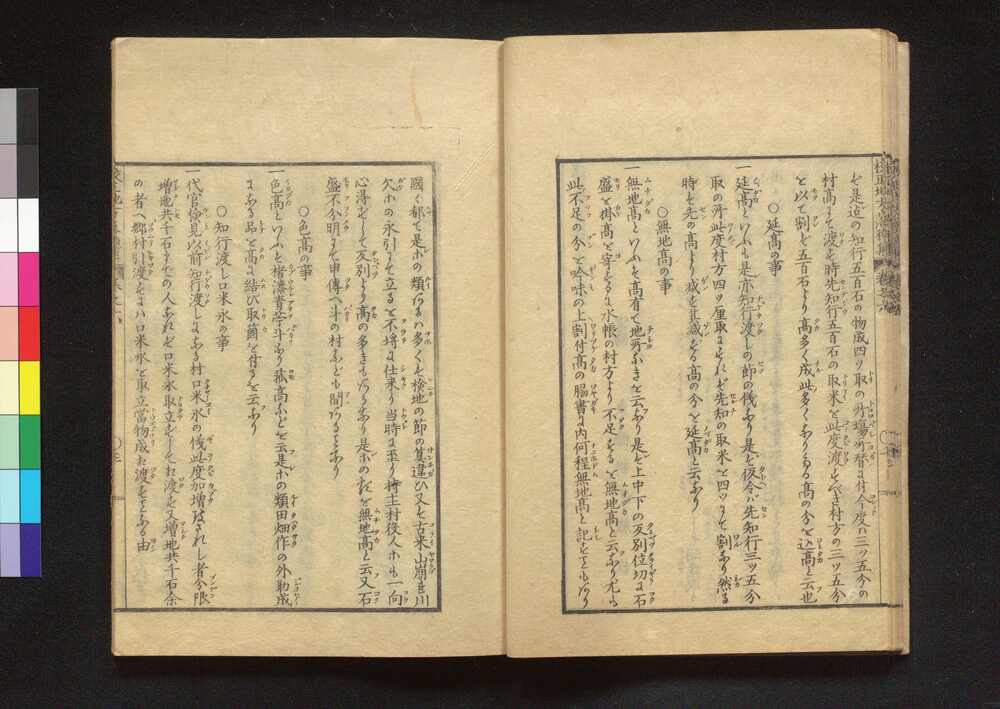 を是迄の知行五百石の物成四ツ取の所場所替に付今度ハ三ツ五分の
村高にて渡る時先知行五百石の取米を此度渡すべき村方の三ツ五分
を以て割ば五百石より高多く成此多くなりたる高の分を込高と云也
○延高の事
一延高といふも是亦知行渡しの節の儀なり是を仮令ハ先知行三ツ五分
取の所此度村方四ツ厘取にすれば先知の取米を四ツにて割なり然る
時も先の高より減ず其減ずる高の分を延高と云なり
○無地高の事
一無地高といふも高有て地所なきを云なり是を上中下の反別位切に石
盛を掛高を寄たる水帳の村方より不足なるを無地高と云なり尤も
此不足の分を吟味の上割付高の脇書に内何程無地高と記すこともあり
國々都て是ホの類あるハ多くも検地の節の算違ひ又も古来山崩川
欠ホの永引にて立るを不埒に仕来り当時に至り持主村役人ホも一向
心得ずして反別より高の多きもあるなり是ホの訳を無地高と云又石
盛不分明にて申傳へ斗の村などにも間々あるなり
○色高の事
一色高といふも楮漆青苧斗なり菰高などを云是ホの類田畑作の外助成
になる品を高に結び取箇を付るを云なり
○知行渡し口米永の事
一代官検見以前知行渡しになる村口米永の儀此度加増致されし者今限
増地共千石までの人なれば口米永取立ずしてお渡すべし又増地共千石余
の者へ郷村引渡すにハ口米永を取立當物成お渡すことなる由